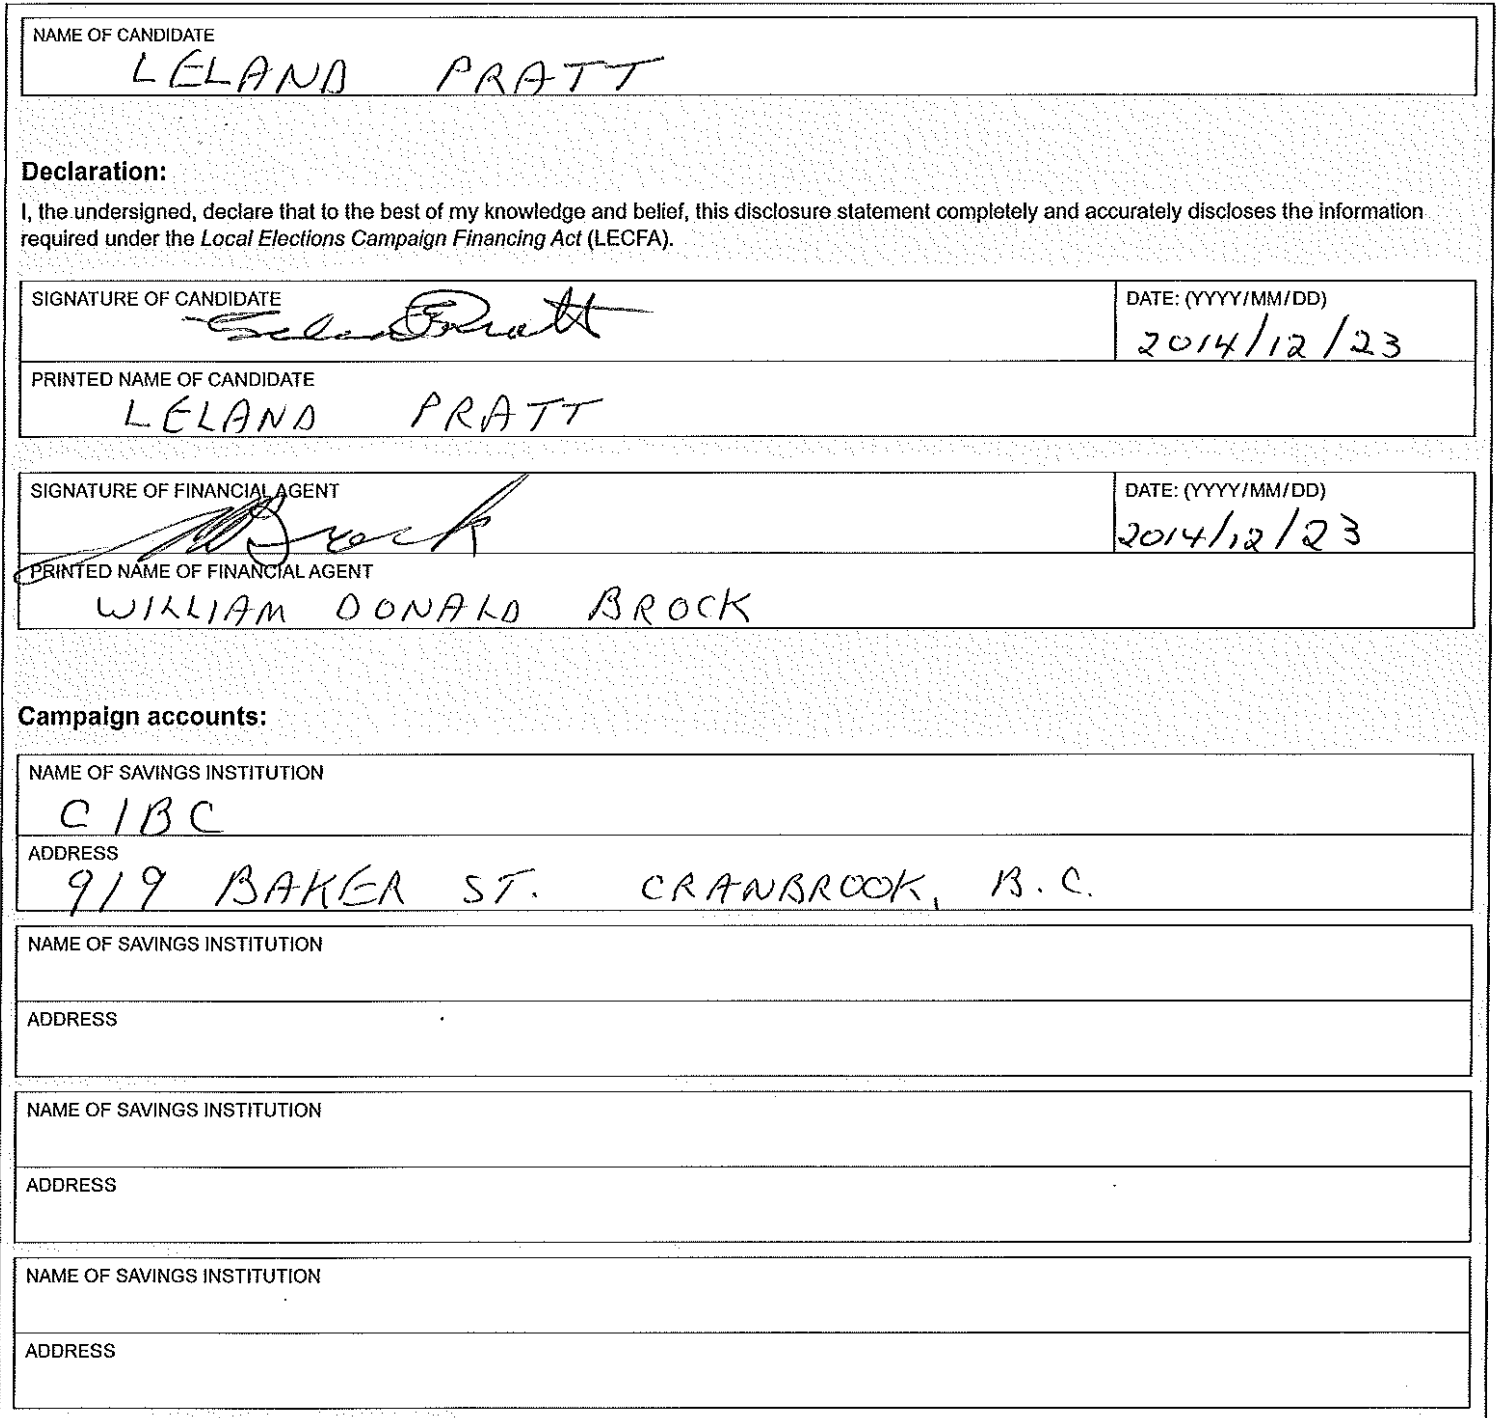 NAME OF CANDIDATE
LELAND PRATT
Declaration:
I, the undersigned, declare that to the best of my knowledge and belief, this disclosure statement completely and accurately discloses the information
required under the Local Elections Campaign Financing Act (LECFA).
SIGNATURE OF CANDIDATE
Leland Pratt
DATE: (YYYY/MM/DD)
2014/12/23
PRINTED NAME OF CANDIDATE
LELAND PRATT
SIGNATURE OF FINANCIAL AGENT
Brock
DATE: (YYYY/MM/DD)
2014/12/23
PRINTED NAME OF FINANCIAL AGENT
WILLIAM DONALD BROCK
Campaign accounts:
NAME OF SAVINGS INSTITUTION
CIBC
ADDRESS
919 BAKER ST. CRANBROOK, B.C.
NAME OF SAVINGS INSTITUTION
ADDRESS
NAME OF SAVINGS INSTITUTION
ADDRESS
NAME OF SAVINGS INSTITUTION
ADDRESS